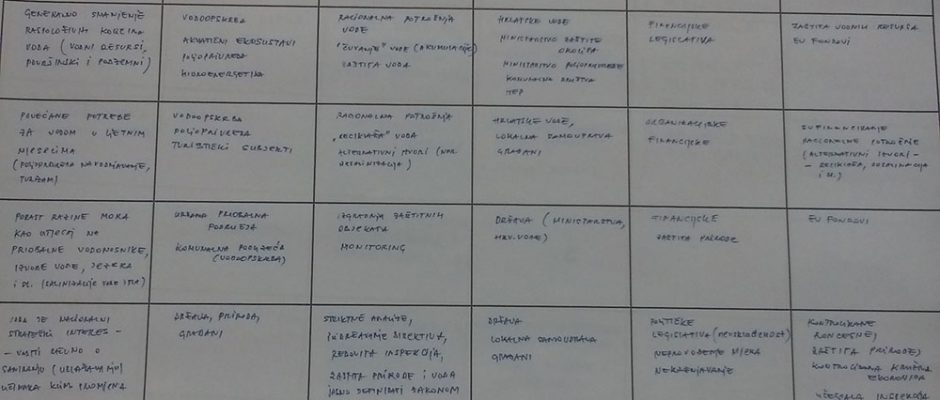 GENERALNO SMANJENJE
RASPOLOŽIVIH KOLIČINA
VODA (VODNI RESURSI,
POVRŠINSKI I PODZEMNI)
VODOOPSKRBA
AKVATIČNI EKOSUSTAVI
POLJOPRIVREDA
HIDROENERGETIKA
RACIONALNA POTROŠNJA
VODE
"ČUVANJE" VODE (AKUMULACIJE)
ZAŠTITA VODA
HRVATSKE VODE
MINISTARSTVO ZAŠTITE
OKOLIŠA
MINISTARSTVO POLJOPRIVREDE
KOMUNALNA DRUŠTVA
HEP
FINANCIJSKE
LEGISLATIVA
ZAŠTITA VODNIH RESURSA
EU FONDOVI
POVEĆANE POTREBE
ZA VODOM U LJETNIM
MJESECIMA
(POLJOPRIVREDA NAVODNJAVANJE,
TURIZAM)
VODOOPSKRBA
POLJOPRIVREDA
TURISTIČKI SUBJEKTI
RACIONALNA POTROŠNJA
"RECIKLAŽA" VODA
ALTERNATIVNI IZVORI (NPR.
DESALINIZACIJA)
HRVATSKE VODE,
LOKALNA SAMOUPRAVA
GRAĐANI
ORGANIZACIJSKE
FINANCIJSKE
SUFINANCIRANJE
RACIONALNE POTROŠNJE
(ALTERNATIVNI IZVORI -
- RECIKLAŽA, DESALINACIJA
I SL.)
PORAST RAZINE MORA
KAO UTJECAJ NA
PRIOBALNE VODONOSNIKE,
IZVORE VODE, JEZERA
I SL. (SALINIZACIJE
URBANA PRIOBALNA
PODRUČJA
KOMUNALNA PODUZEĆA
(VODOOPSKRBA)
IZGRADNJA ZAŠTITNIH
OBJEKATA
MONITORING
DRŽAVA (MINISTARSTVA,
HRV. VODE)
FINANCIJSKE
ZAŠTITA PRIRODE
EU FONDOVI
JE NACIONALNI
STRATEŠKI INTERES -
- VODITI RAČUNA O
SANIRANJU (UBLAŽAVANJU)
UČINAKA KLIM PROMJENA
DRŽAVA, PRIRODA,
GRAĐANI
STRIKTNE ANALIZE,
DIREKTIVA,
REDOVITA INSPEKCIJA,
ZAŠTITA PRIRODE I VODA
JASNO DEFINIRATI ZAKONOM
DRŽAVA
LOKALNA SAMOUPRAVA
GRAĐANI
POLITIČKE
LEGISLATIVA (NEUSKLAĐENOST)
NEPROVOĐENJE MJERA
NEKAŽNJAVANJE
KONTROLIRANE
KONCESIJE,
ZAŠTITA PRIRODE,
KONTROLIRANA
INSPEKCIJA